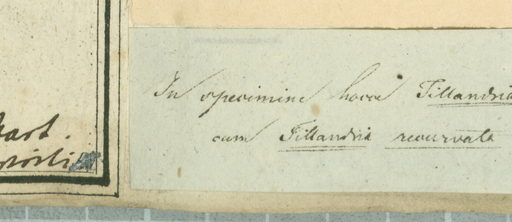 In specimine hocce Tillandria
cum Tillandria recurvata
hart.